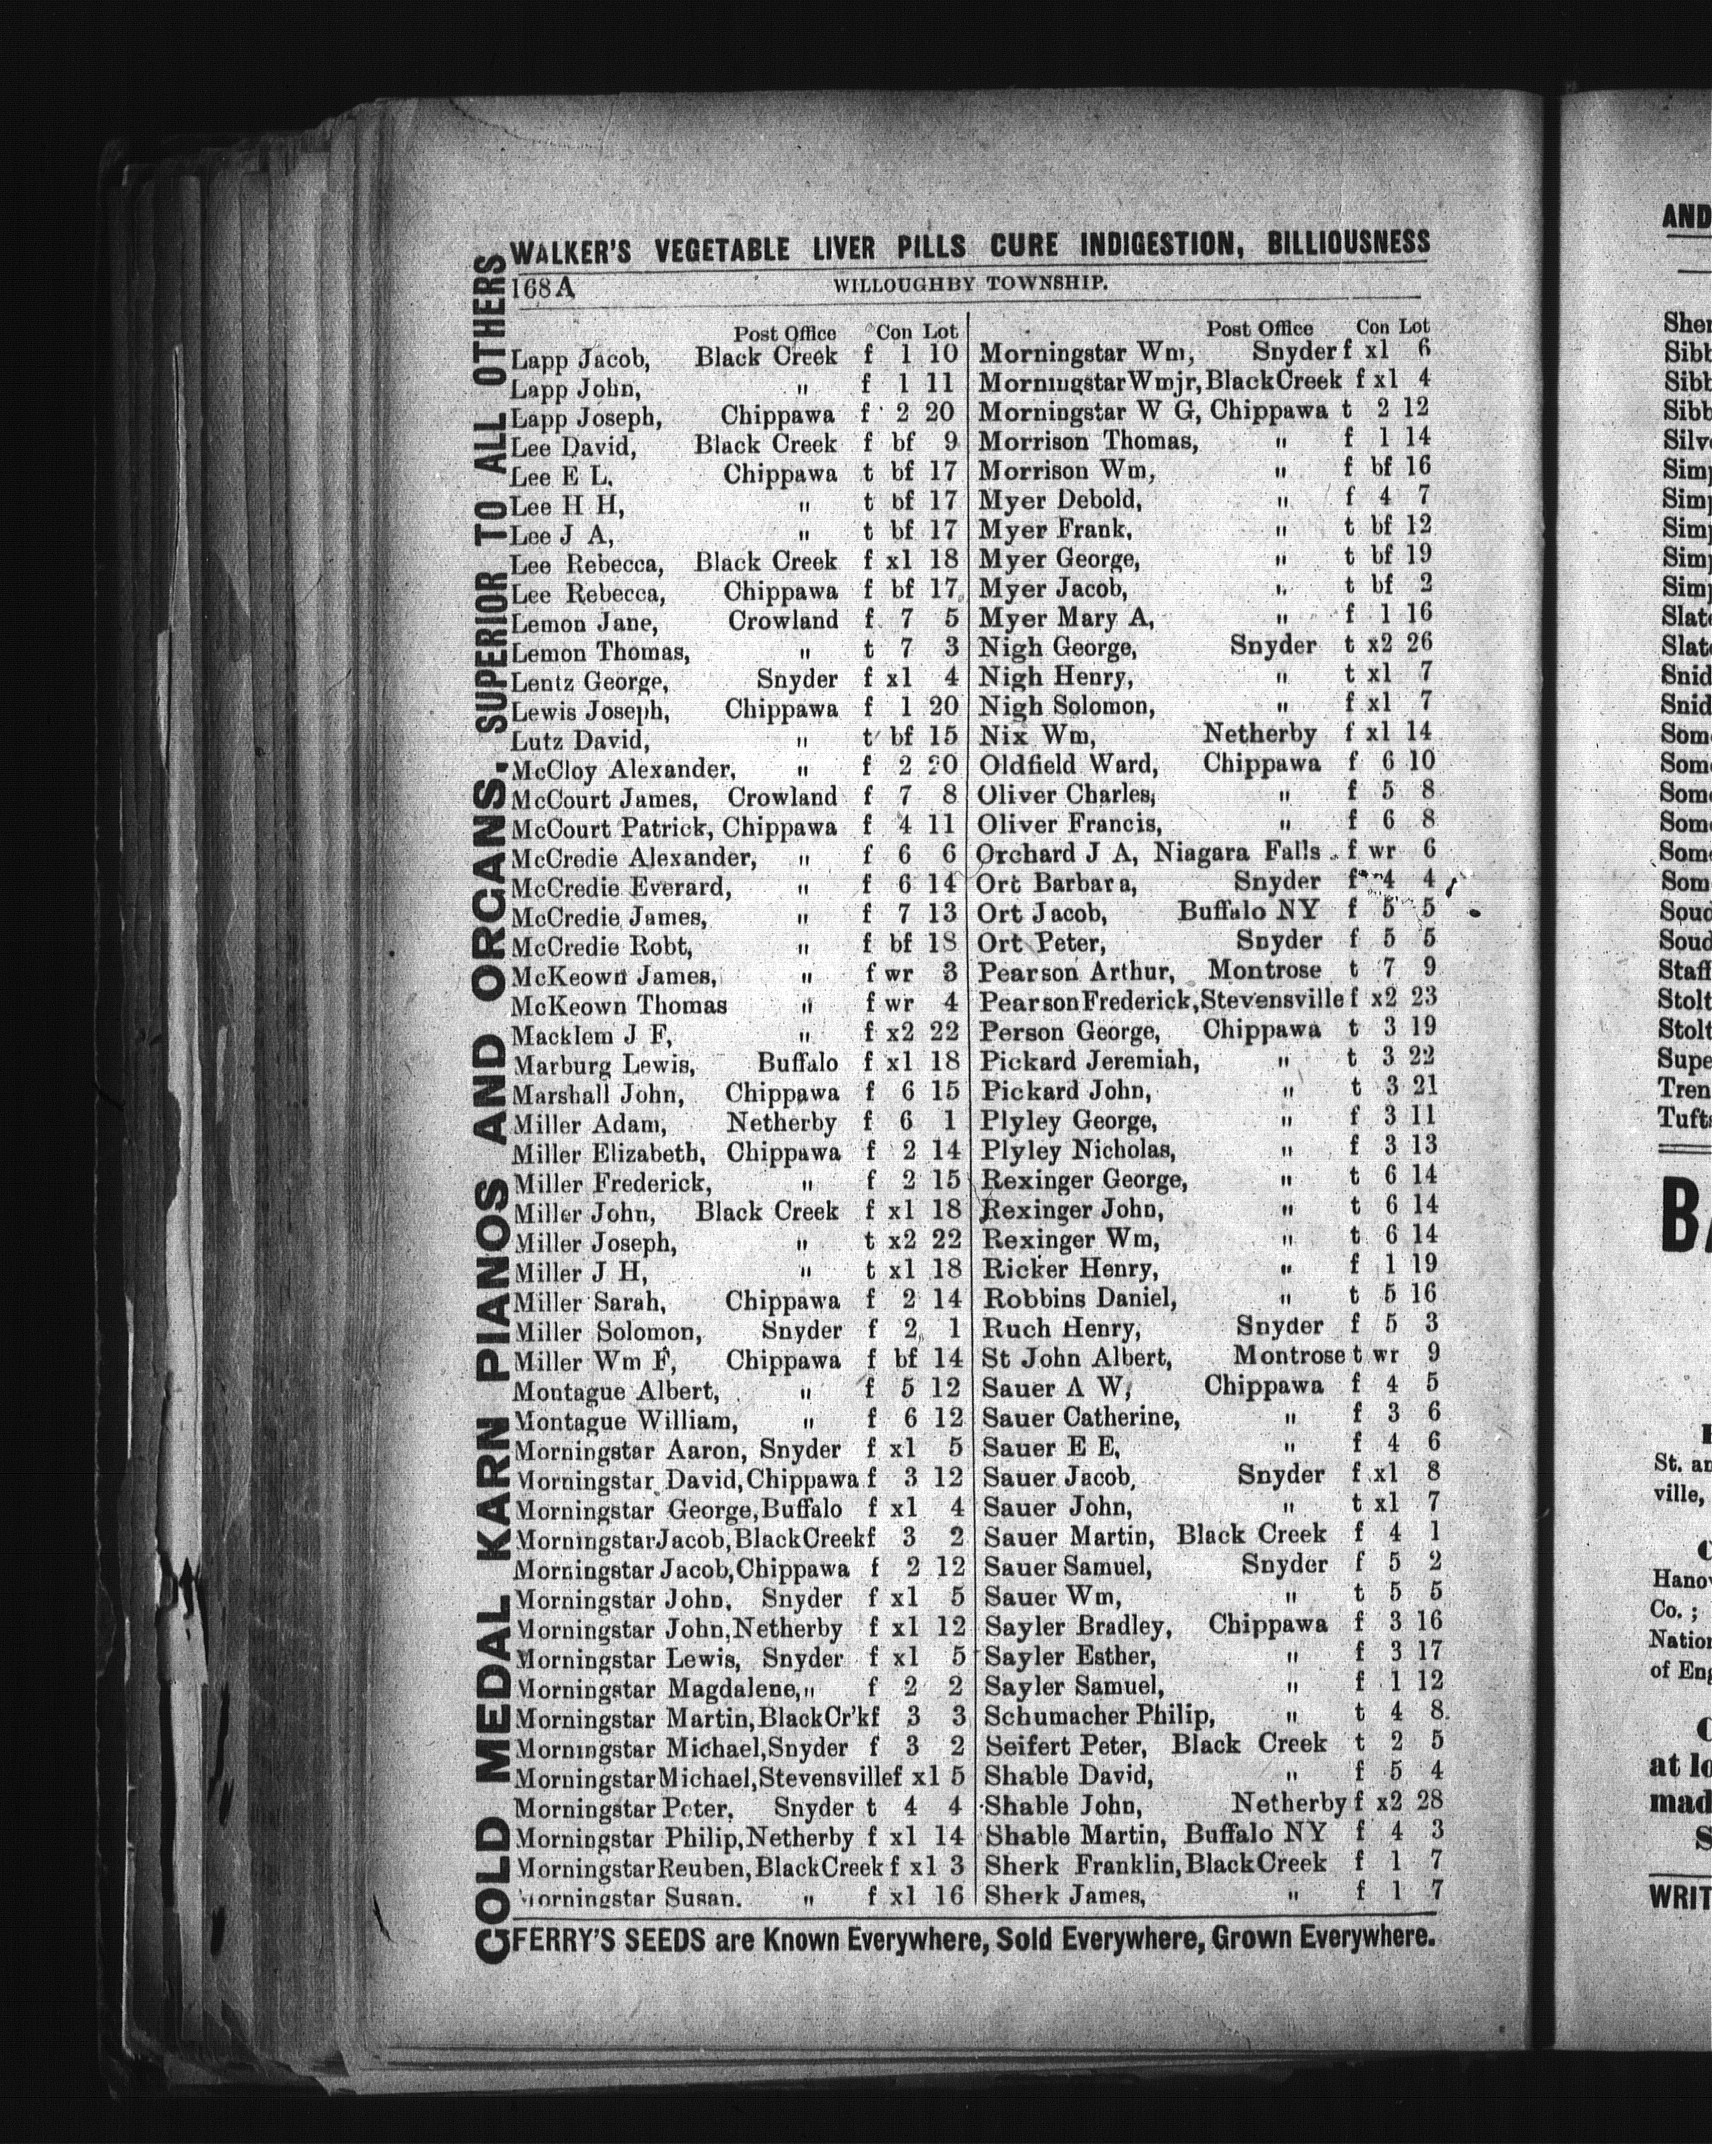 WALKER'S VEGETABLE LIVER PILLS CURE INDIGESTION, BILLIOUSNESS
168A WILLOUGHBY TOWNSHIP.
GOLD MEDAL KARN PIANOS AND ORGANS. SUPERIOR TO ALL OTHERS
Post Office Con Lot
Lapp Jacob, Black Creek f 1 10
Lapp John, " f 1 11
Lapp Joseph, Chippawa f 2 20
Lee David, Black Creek f bf 9
Lee E L, Chippawa t bf 17
Lee H H, " t bf 17
Lee J A, " t bf 17
Lee Rebecca, Black Creek f x1 18
Lee Rebecca, Chippawa f bf 17
Lemon Jane, Crowland f 7 5
Lemon Thomas, " t 7 3
Lentz George, Snyder f x1 4
Lewis Joseph, Chippawa f 1 20
Lutz David, " t bf 15
McCloy Alexander, " f 2 20
McCourt James, Crowland f 7 8
McCourt Patrick, Chippawa f 4 11
McCredie Alexander, " f 6 6
McCredie Everard, " f 6 14
McCredie James, " f 7 13
McCredie Robt, " f bf 18
McKeown James, " f wr 3
McKeown Thomas " f wr 4
Macklem J F, " f x2 22
Marburg Lewis, Buffalo f x1 18
Marshall John, Chippawa f 6 15
Miller Adam, Netherby f 6 1
Miller Elizabeth, Chippawa f 2 14
Miller Frederick, " f 2 15
Miller John, Black Creek f x1 18
Miller Joseph, " t x2 22
Miller J H, " t x1 18
Miller Sarah, Chippawa f 2 14
Miller Solomon, Snyder f 2 1
Miller Wm F, Chippawa f bf 14
Montague Albert, " f 5 12
Montague William, " f 6 12
Morningstar Aaron, Snyder f x1 5
Morningstar David, Chippawa f 3 12
Morningstar George, Buffalo f x1 4
Morningstar Jacob, Black Creek f 3 2
Morningstar Jacob, Chippawa f 2 12
Morningstar John, Snyder f x1 5
Morningstar John, Netherby f x1 12
Morningstar Lewis, Snyder f x1 5
Morningstar Magdalene, " f 2 2
Morningstar Martin, Black Cr'k f 3 3
Morningstar Michael, Snyder f 3 2
Morningstar Michael, Stevensville f x1 5
Morningstar Peter, Snyder t 4 4
Morningstar Philip, Netherby f x1 14
Morningstar Reuben, Black Creek f x1 3
Morningstar Susan. " f x1 16
Post Office Con Lot
Morningstar Wm, Snyder f x1 6
Morningstar Wm jr, Black Creek f x1 4
Morningstar W G, Chippawa t 2 12
Morrison Thomas, " f 1 14
Morrison Wm, " f bf 16
Myer Debold, " f 4 7
Myer Frank, " t bf 12
Myer George, " t bf 19
Myer Jacob, " t bf 2
Myer Mary A, " f 1 16
Nigh George, Snyder t x2 26
Nigh Henry, " t x1 7
Nigh Solomon, " f x1 7
Nix Wm, Netherby f x1 14
Oldfield Ward, Chippawa f 6 10
Oliver Charles, " f 5 8
Oliver Francis, " f 6 8
Orchard J A, Niagara Falls f wr 6
Ort Barbara, Snyder f 4 4
Ort Jacob, Buffalo NY f 5 5
Ort Peter, Snyder f 5 5
Pearson Arthur, Montrose t 7 9
Pearson Frederick, Stevensville f x2 23
Person George, Chippawa t 3 19
Pickard Jeremiah, " t 3 22
Pickard John, " t 3 21
Plyley George, " f 3 11
Plyley Nicholas, " f 3 13
Rexinger George, " t 6 14
Rexinger John, " t 6 14
Rexinger Wm, " t 6 14
Ricker Henry, " f 1 19
Robbins Daniel, " t 5 16
Ruch Henry, Snyder f 5 3
St John Albert, Montrose t wr 9
Sauer A W, Chippawa f 4 5
Sauer Catherine, " f 3 6
Sauer E E, " f 4 6
Sauer Jacob, Snyder f x1 8
Sauer John, " t x1 7
Sauer Martin, Black Creek f 4 1
Sauer Samuel, Snyder f 5 2
Sauer Wm, " t 5 5
Sayler Bradley, Chippawa f 3 16
Sayler Esther, " f 3 17
Sayler Samuel, " f 1 12
Schumacher Philip, " t 4 8
Seifert Peter, Black Creek t 2 5
Shable David, " f 5 4
Shable John, Netherby f x2 28
Shable Martin, Buffalo NY f 4 3
Sherk Franklin, Black Creek f 1 7
Sherk James, " f 1 7
FERRY'S SEEDS are Known Everywhere, Sold Everywhere, Grown Everywhere.
AND
St.
ville,
Co. ;
at